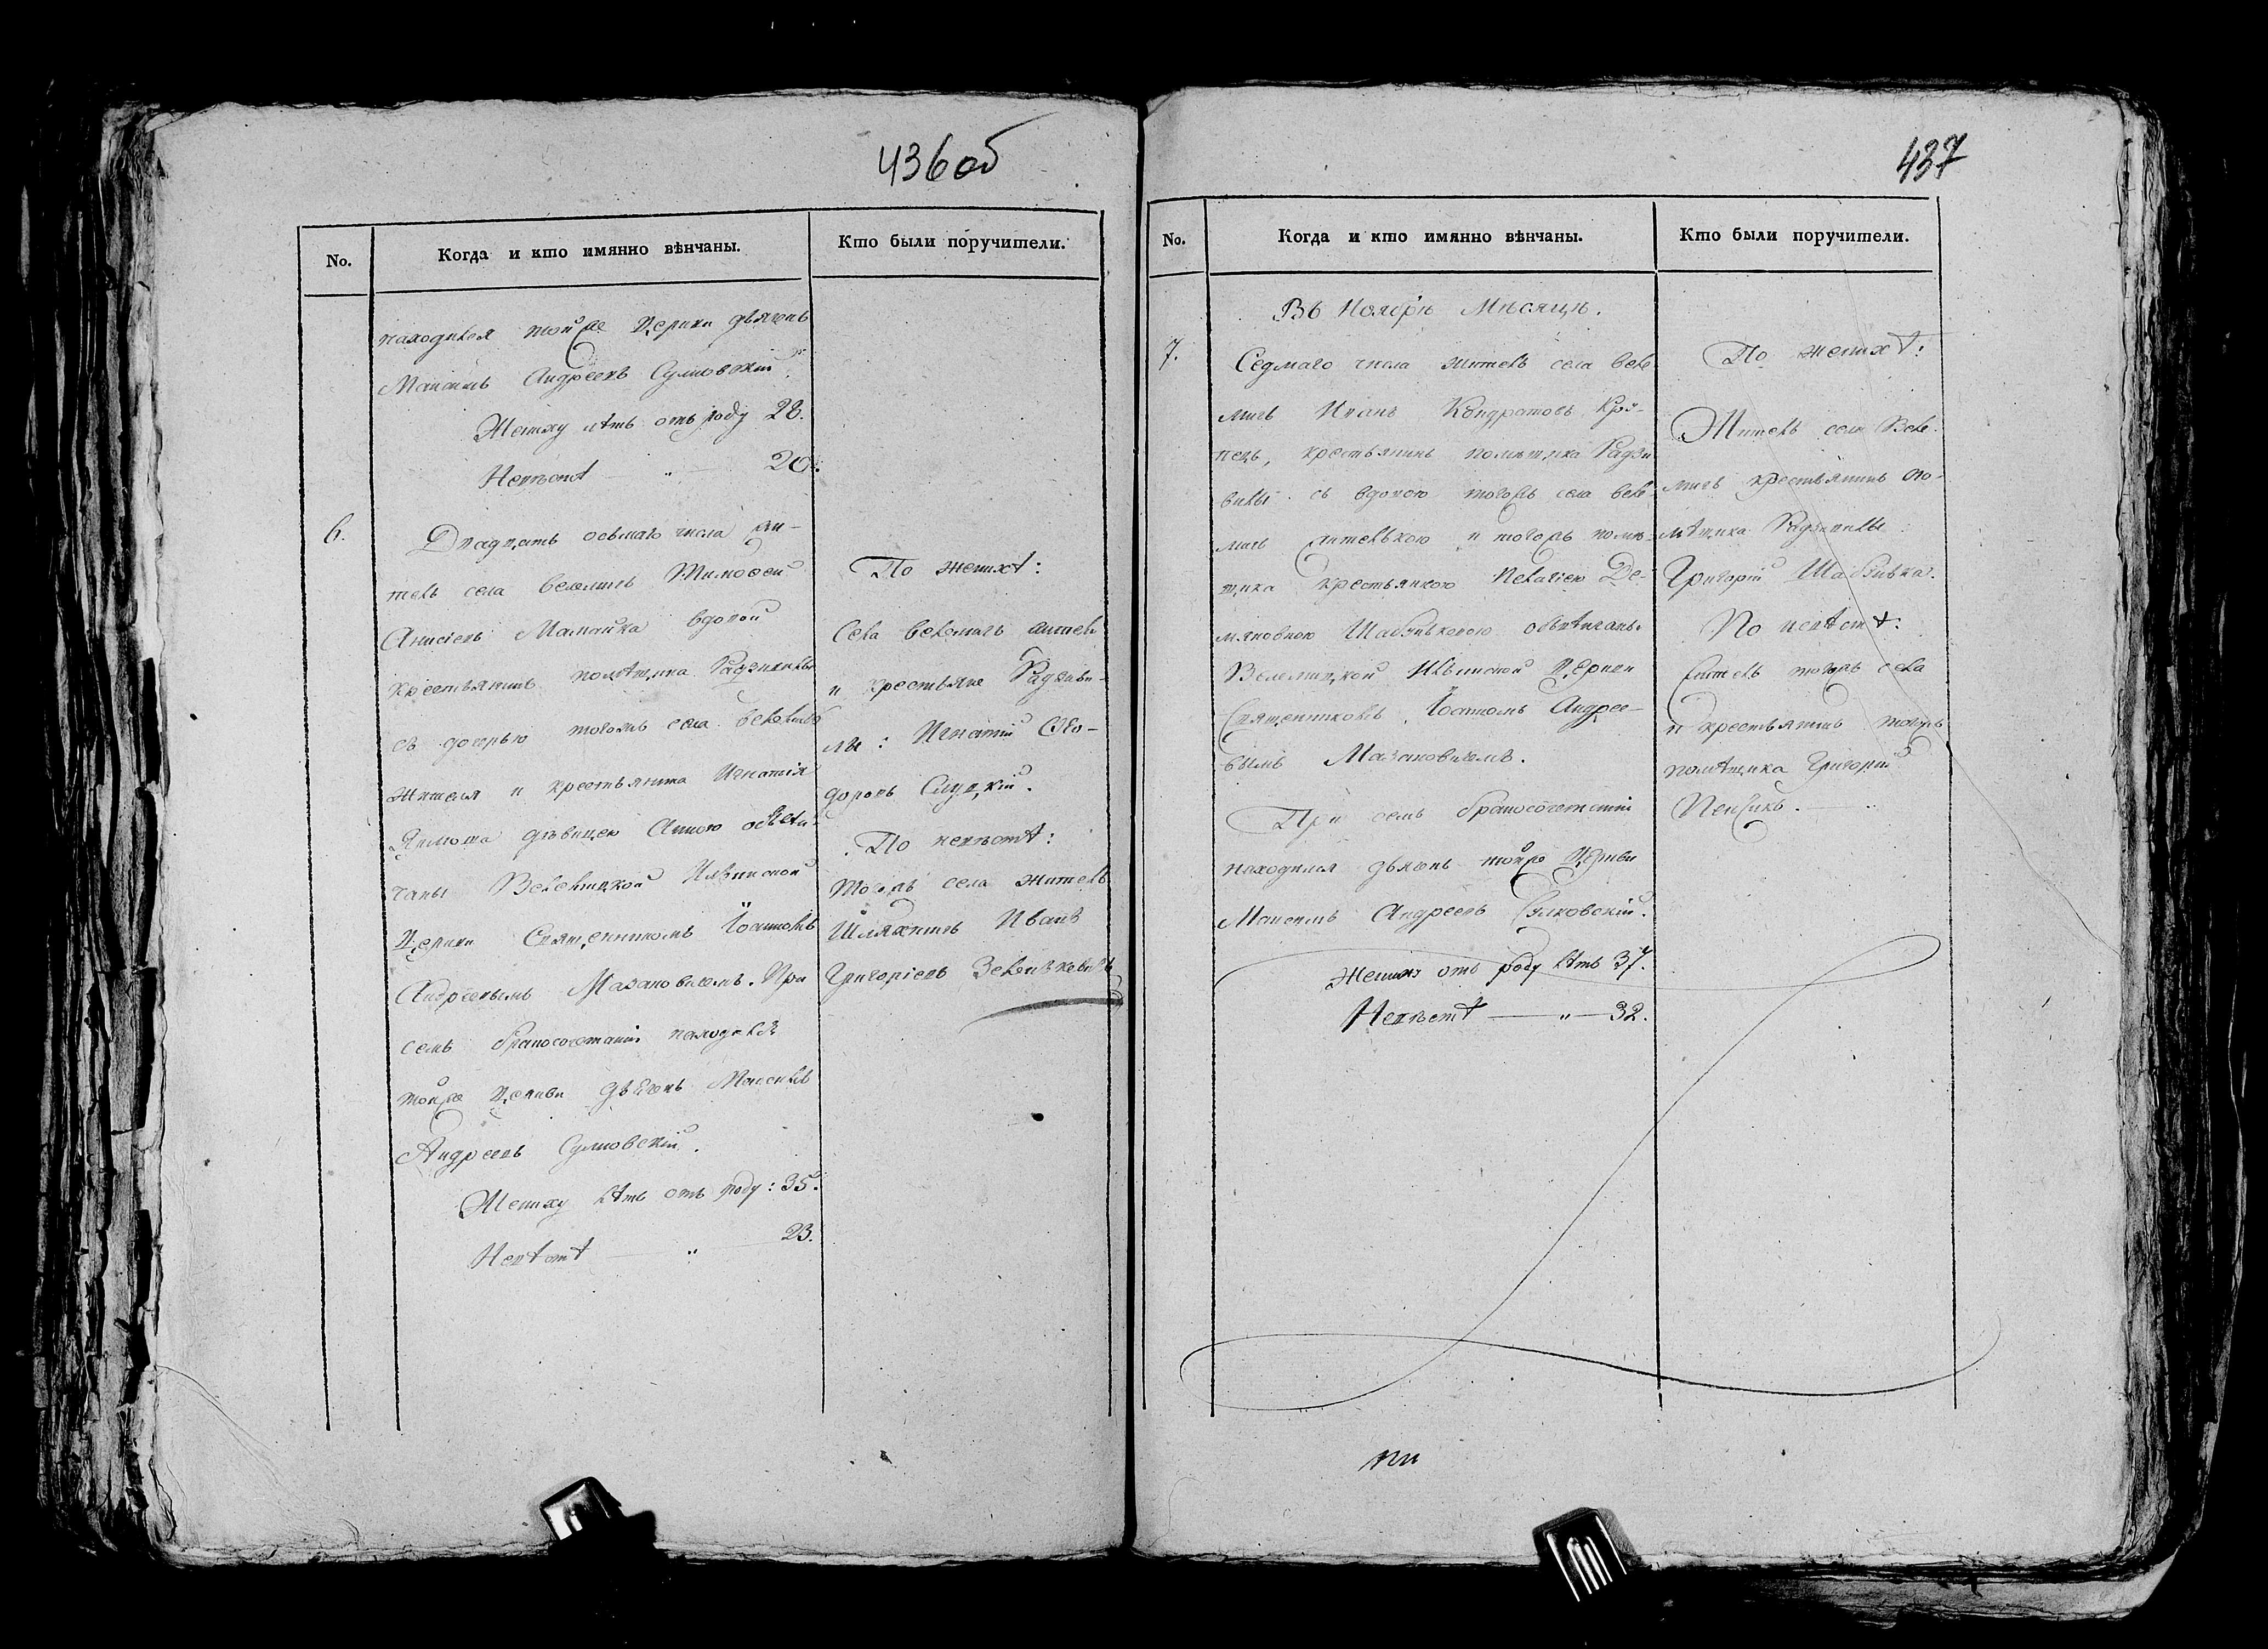 436 об
No.
Когда и кто имянно вѣнчаны.
Кто были поручители.
находился тойже Церкви дьячокъ
Андреевъ Сулковскій.
Жениху лѣтъ отъ роду 28.
Невѣстѣ — „ — 20.
6.
Двадцать осьмаго числа жи-
тель села Велемичь Тимофей
Мамайка вдовой
крестьянинъ помѣщика Радзивила
съ дочерью тогожъ села
жителя и крестьянина Игнатія
дѣвицею Анною обвѣн-
чаны Велемицкой Ильинской
Церкви Священникомъ Іоанномъ
Андреевымъ Мазановичемъ. При
семъ бракосочетаніи находился
тойже Церкви дьячокъ
Андреевъ Сулковскій.
Жениху лѣтъ отъ роду: 35.
Невѣстѣ — „ — 23.
По женихѣ:
Села Велемичь жители
и крестьяне Радзиви-
лы: Игнатій Ѳео-
доровъ Слуцкій.
По невѣстѣ:
Тогожъ села житель
Шляхтичь Иванъ
Григоріевъ
437
No.
Когда и кто имянно вѣнчаны.
Кто были поручители.
Въ Ноябрѣ Мѣсяцѣ.
7.
Седмаго числа житель села Веле-
мичь Иванъ Кондратовъ
крестьянинъ помѣщика Радзи-
вилы съ вдовою тогожъ села Веле-
мичь жителькою и тогожъ помѣ-
щика крестьянкою Пелагіею Де-
мяновною Шабунковою обвѣнчаны
Велемицкой Ильинской Церкви
Священникомъ Іоанномъ Андрее-
вымъ Мазановичемъ.
При семъ бракосочетаніи
находился дьячокъ тойже Церкви
Андреевъ Сулковскій.
Жениху отъ роду лѣтъ 37.
Невѣстѣ — „ — 32.
По женихѣ:
Житель села Веле-
мичь крестьянинъ по-
мѣщика Радзивилы
Григорій
По невѣстѣ:
Житель тогожъ села
и крестьянинъ тогожъ
помѣщика Григорій